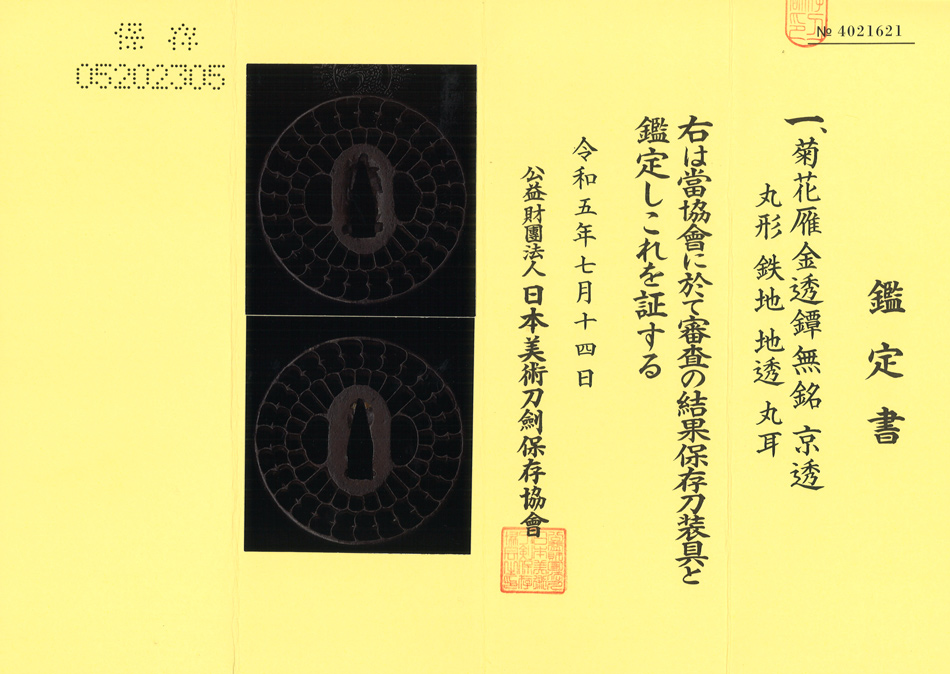 № 4021621
鑑定書
一、菊花雁金透鐔 無銘 京透
丸形 鉄地 地透 丸耳
右は當協會に於て審査の結果保存刀装具と
鑑定しこれを証する
令和五年七月十四日
公益財團法人 日本美術刀剣保存協會
保存
05202305